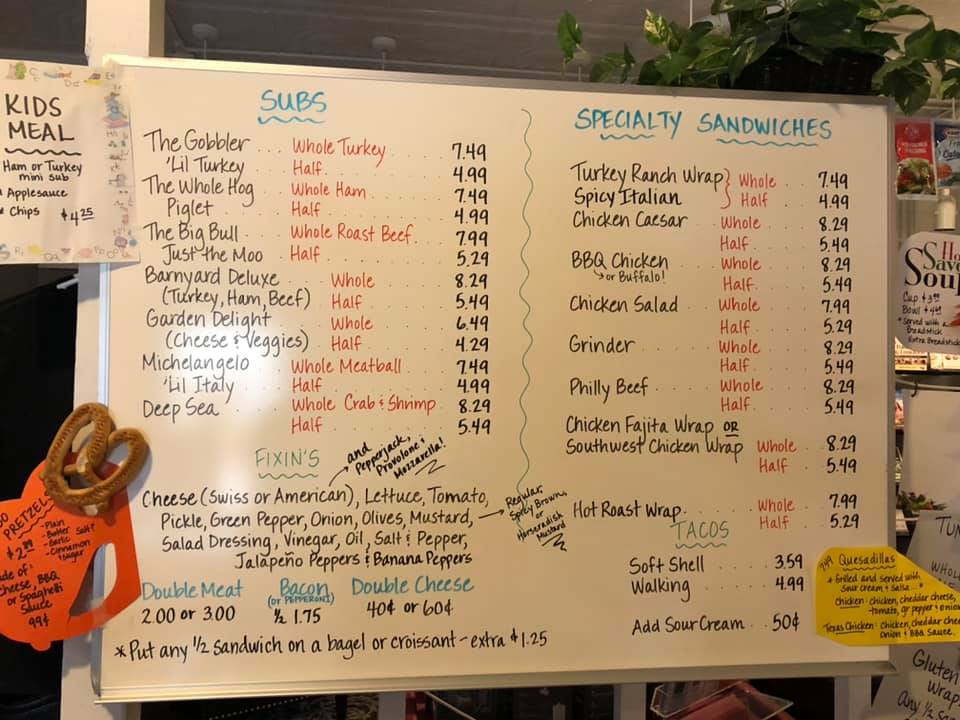 KIDS
MEAL
Ham or Turkey
mini sub
Applesauce
Chips $4.25
SUBS
The Gobbler .... Whole Turkey ..... 7.49
'Lil Turkey .... Half ..... 4.99
The Whole Hog .. Whole Ham ..... 7.49
Piglet .... Half ..... 4.99
The Big Bull .. Whole Roast Beef .... 7.99
Just the Moo .. Half ..... 5.29
Barnyard Deluxe .... Whole ..... 8.29
(Turkey, Ham, Beef) Half ..... 5.49
Garden Delight .... Whole ..... 6.49
(Cheese & Veggies) Half ..... 4.29
Michelangelo .... Whole Meatball .... 7.49
'Lil Italy .... Half ..... 4.99
Deep Sea .... Whole Crab & Shrimp .. 8.29
Half ..... 5.49
FIXIN'S
and Pepperjack, Provolone & Mozzarella!
Cheese (Swiss or American), Lettuce, Tomato,
Pickle, Green Pepper, Onion, Olives, Mustard,
Regular, Spicy Brown, or Horseradish Mustard
Salad Dressing, Vinegar, Oil, Salt & Pepper,
Jalapeño Peppers & Banana Peppers
Double Meat
2.00 or 3.00
Bacon
(or PEPPERONI)
½ 1.75
Double Cheese
40¢ or 60¢
*Put any ½ sandwich on a bagel or croissant - extra $1.25
SPECIALTY SANDWICHES
Turkey Ranch Wrap } Whole .... 7.49
Spicy Italian } Half .... 4.99
Chicken Caesar .... Whole .... 8.29
Half .... 5.49
BBQ Chicken .... Whole .... 8.29
or Buffalo!
Half .... 5.49
Chicken Salad .... Whole .... 7.99
Half .... 5.29
Grinder .... Whole .... 8.29
Half .... 5.49
Philly Beef .... Whole .... 8.29
Half .... 5.49
Chicken Fajita Wrap OR
Southwest Chicken Wrap Whole .. 8.29
Half .. 5.49
Hot Roast Wrap .... Whole .. 7.99
Half .. 5.29
TACOS
Soft Shell .... 3.59
Walking .... 4.99
Add Sour Cream .. 50¢
PRETZELS
$2.89
-Plain
-Butter
Salt
-Garlic
-Cinnamon
& Sugar
Cheese, BBQ
or Spaghetti
Sauce
99¢
Soup
Cup $3.99
Bowl
*Served with a
Breadstick
Extra Breadstick
7.49 Quesadillas
*Grilled and served with
sour cream & salsa...*
Chicken: chicken, cheddar cheese,
tomato, gr pepper & onion
Texas Chicken: Chicken, cheddar
onion & BBQ Sauce.
Gluten
Wrap
any ½